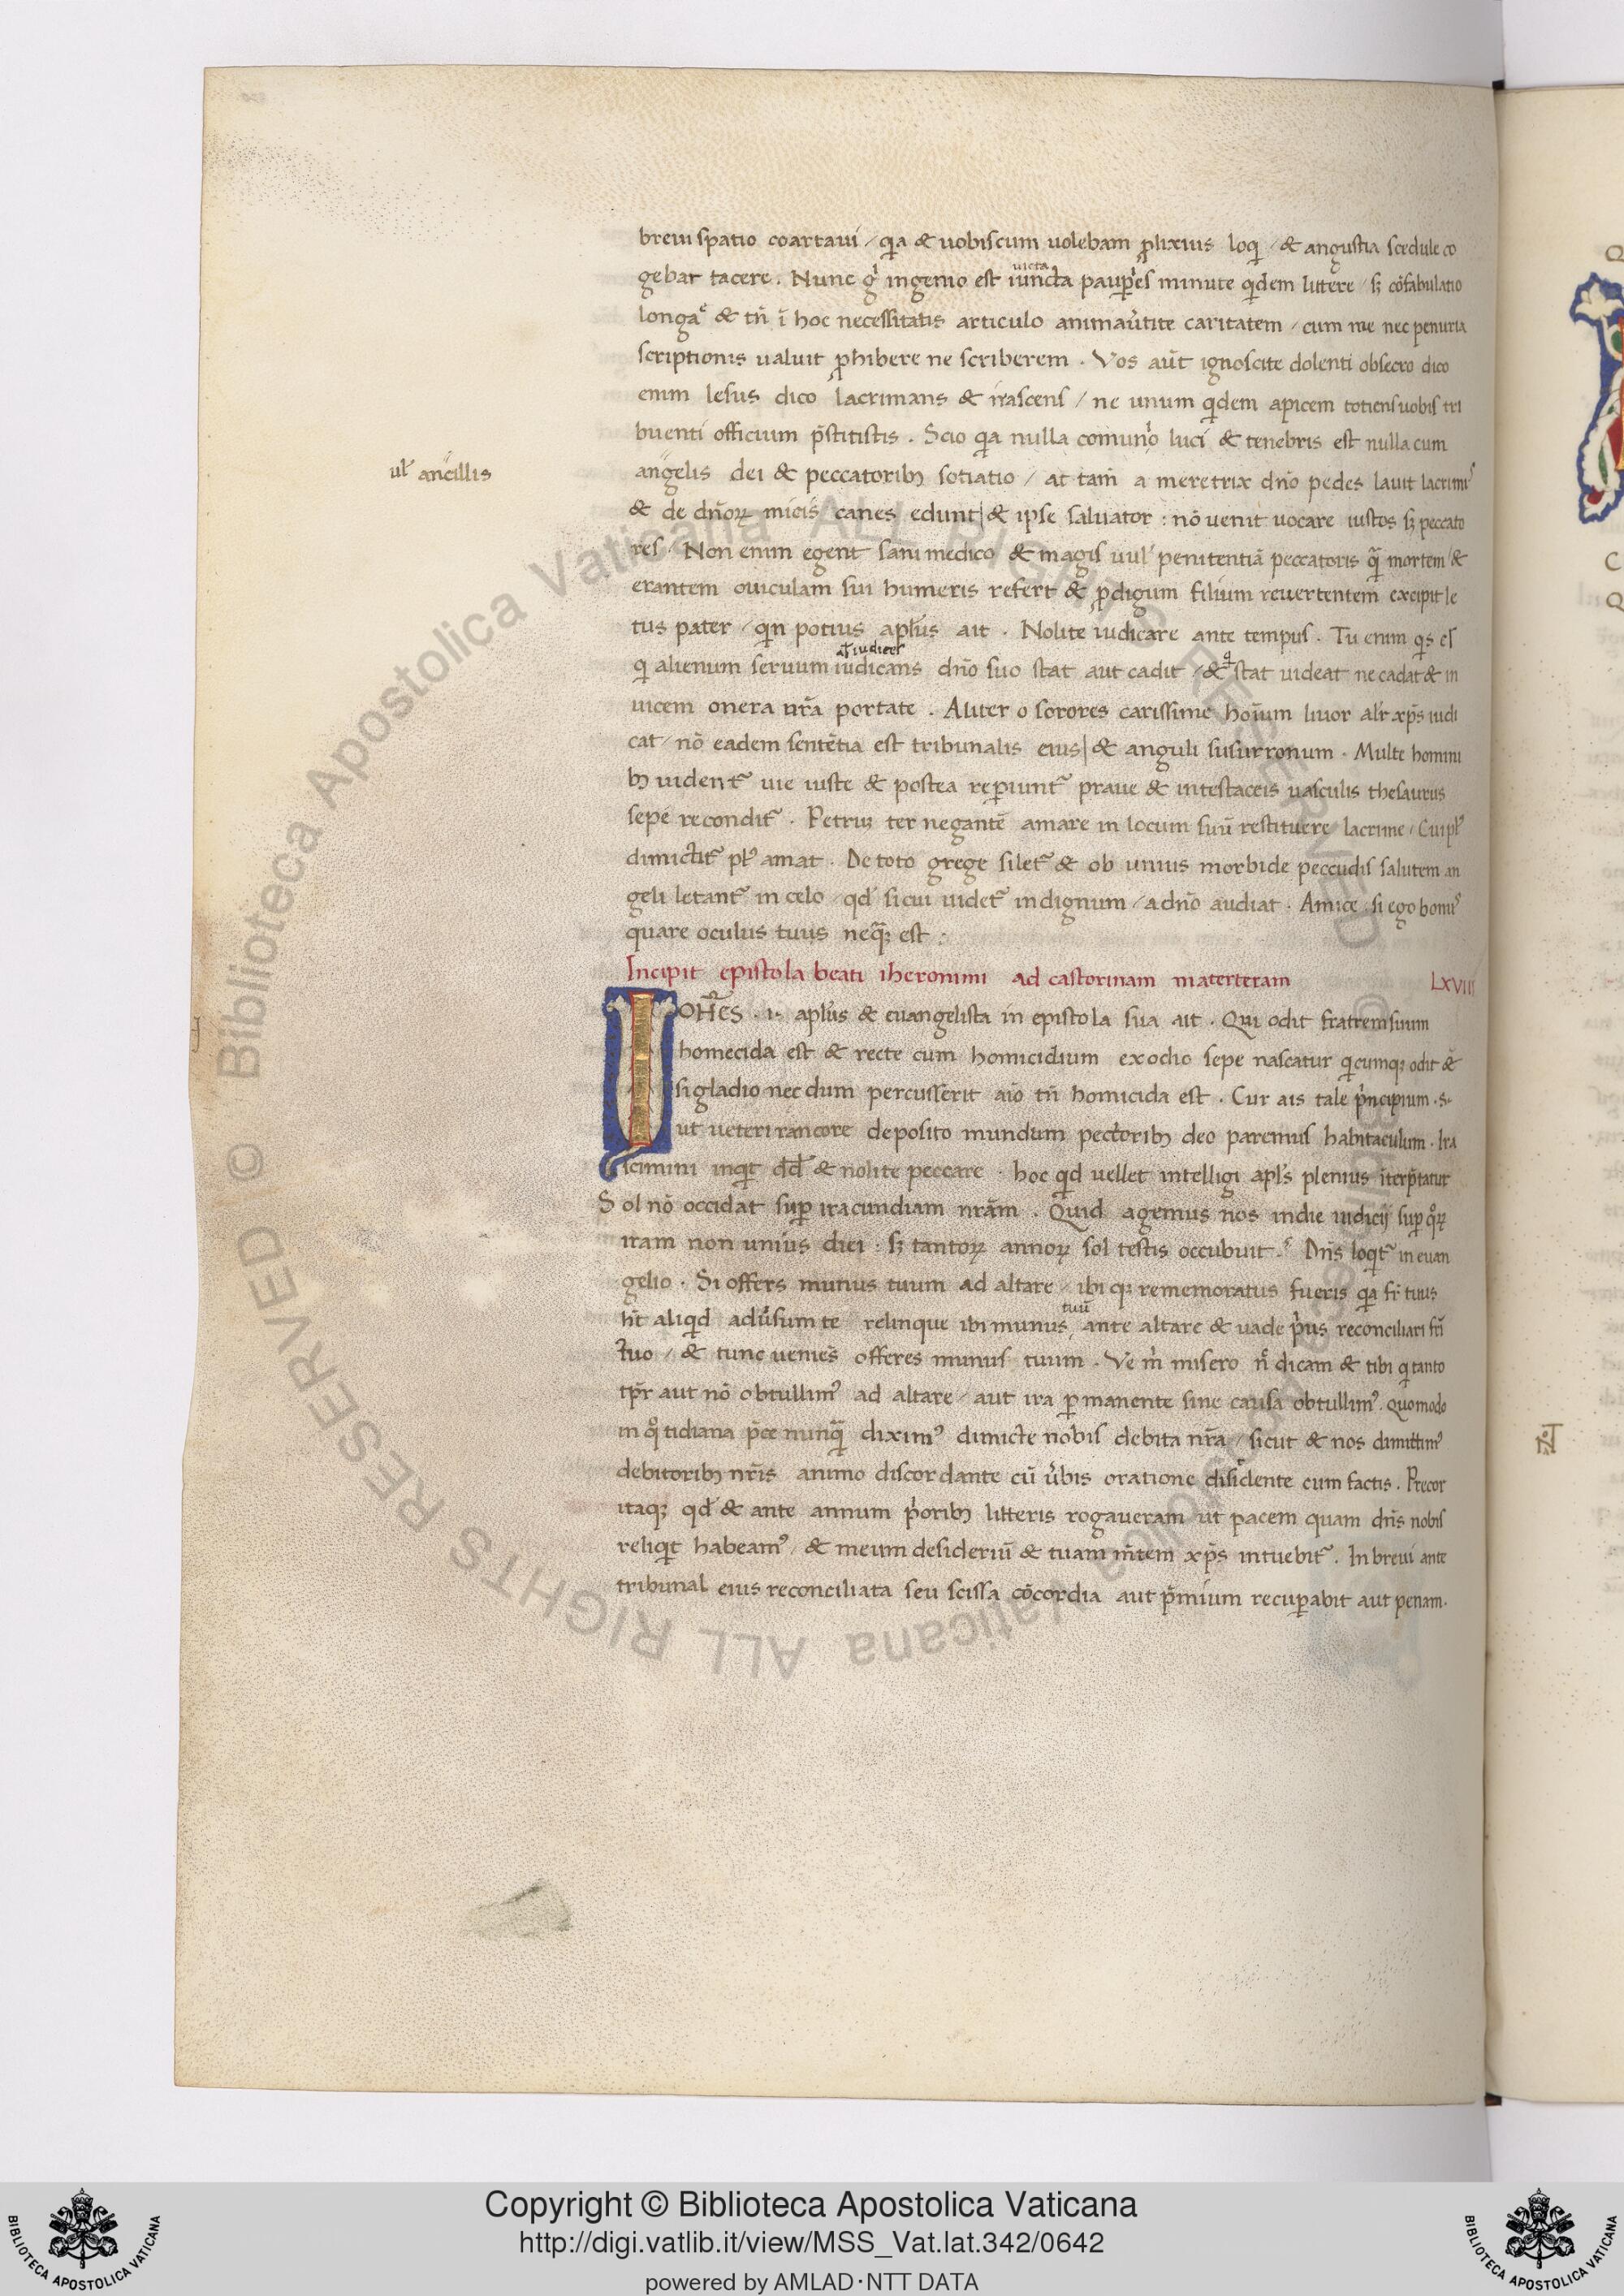 breui spatio coartaui / qa & uobiscum uolebam ꝓlixius loqi / & angustia scedule co
gebat tacere . Nunc gͥ ingenio est iuncta pauꝑͥes minute qidem littere / sꝫ cōfabulatio
uicta
longa & tn̄ ī hoc necessitatis articulo animau̓tite caritatem / cum me nec penuria
scriptionis ualuit ꝓhibere ne scriberem . Vos aūt ignoscite dolenti obsecro dico
enim lesus dico lacrimans & irascens / ne unum qidem apicem totiens uobis tri
buenti officium p̄stitistis . Scio qa nulla comunͥo luci & tenebris est nulla cum
angelis dei & peccatoribꝫ sotiatio / at tam̄ a meretrix dn̄o pedes lauit lacrimiˢ
ul̓ ancillis
& de dn̄oꝝ micis canes edunt | & ipse saluator : nō uenit uocare iustos sꝫ peccato
res / Non enim egent sani medico & magis uul̓ penitentiā peccatoris qᷓ mortem / &
erantem ouiculam sui humeris refert & ꝓdigum filium reuertentem excipit le
tus pater / qin potius apl̄us ait . Nolite iudicare ante tempus . Tu enim qis es
al̓ iudices
qi alienum seruum iudicans dn̄o suo stat aut cadit / & q stat uideat ne cadat & in
uicem onera nr̄a portate . Aliter o sorores carissime hoīum liuor alr̄ xp̄s iudi
cat / nō eadem sentētia est tribunalis eius | & anguli susurronum . Multe homini
bꝫ uident᷑ uie iuste & postea reꝑiunt᷑ praue & intestaceis uasculis thesaurus
sepe recondit᷑ . Petrum ter negantē amare in locum suū restituere lacrime / Cui plꝰ
dimictit᷑ plꝰ amat . De toto grege silet᷑ & ob unius morbide peccudis salutem an
geli letant᷑ in celo / qd̓ sicui uidet᷑ indignum / a dn̄o audiat . Amice . si ego bonuꝰ
quare oculus tuus neqᷓꝫ est :
Incipit epistola beati iheronimi ad castorinam materteram LXVIII
IOHES . i. apl̄us & euangelista in epistola sua ait . Qui odit fratrem suum
homecida est & recte cum homicidium ex odio sepe nascatur qicumqꝫ odit &
si gladio nec dum percusserit aīo tn̄ homicida est . Cur ais tale pͥncipium . s.
ut ueteri rancore deposito mundum pectoribꝫ deo paremus habitaculum . Ira
scimini inqit dd̄ & nolite peccare . hoc qid uellet intelligi apl̄s plenius īterp̄tatur
Sol nō occidat suꝑ iracundiam nr̄am . Quid agemus nos in die iudicij suꝑ qͦꝝ
iram non unius diei : sꝫ tantoꝝ annoꝝ sol testis occubuit . Dn̄s loqit᷑ in euan
gelio . Si offers munus tuum ad altare / ibi qꝫ rememoratus fueris qa fr̄ tuus
tuū
ht̄ aliqid adu̓sum te relinque ibi munus ante altare & uade pͥus reconciliari fr̄i
tuo / & tunc uenies offeres munus tuum . Ve m̓ misero n̄ dicam & tibi qi tanto
tp̄r aut nō obtullimꝰ ad altare / aut ira ꝑmanente sine causa obtullimꝰ . quomodo
in qͦtidiana p̄ce nunqᷓ diximꝰ dimicte nobis debita nr̄a / sicut & nos dimittimꝰ
debitoribꝫ nr̄is animo discordante cū u̓bis oratione disidente cum factis . Precor
itaqꝫ qd̓ & ante annum pͥoribꝫ litteris rogaueram ut pacem quam dn̄s nobis
reliqit habeamꝰ / & meum desideriū & tuam m̄tem xp̄s intuebit᷑ . In breui ante
tribunal eius reconciliata seu scissa cōcordia aut p̄mium recuꝑabit aut penam .
© Biblioteca Apostolica Vaticana ALL RIGHTS RESERVED
Copyright © Biblioteca Apostolica Vaticana
http://digi.vatlib.it/view/MSS_Vat.lat.342/0642
powered by AMLAD·NTT DATA
BIBLIOTECA APOSTOLICA VATICANA
BIBLIOTECA APOSTOLICA VATICANA